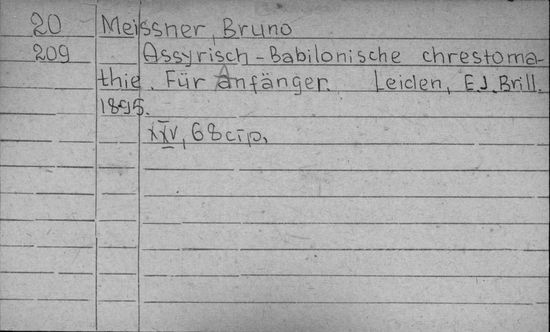 20 Meissner, Bruno
209 Assyrisch-Babilonische chrestoma-
thie. Für Anfänger. Leiden, E.J. Brill.
1895.
XXV, 68 стр.